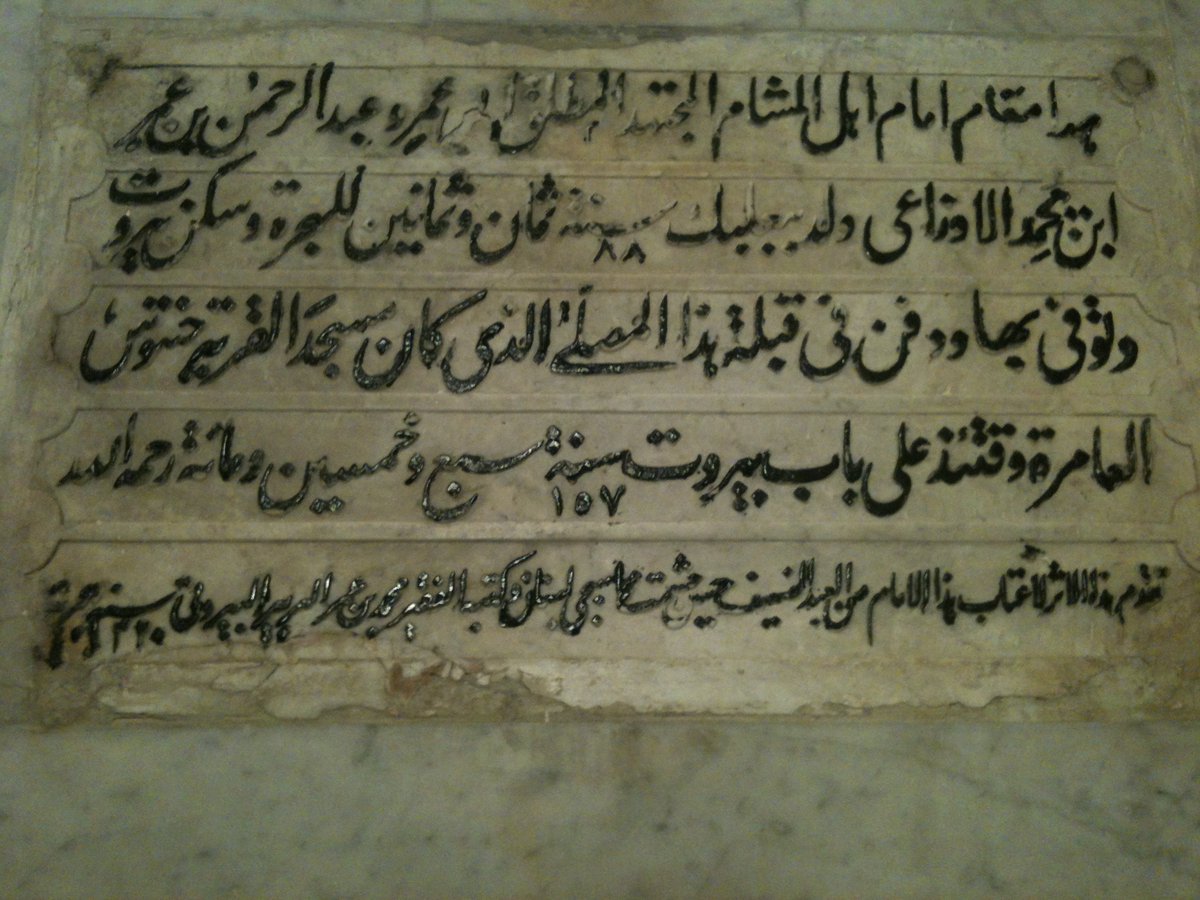 هذا مقام امام اهل الشام المجتهد المطلق ابي عمرو عبد الرحمن بن عمرو
ابن محمد الاوزاعي ولد ببعلبك سنة ٨٨ ثمان وثمانين للهجرة وسكن بيروت
وتوفي بها ودفن في قبلة هذا المصلى الذي كان مسجدا لقرية حنتوس
العامرة وقتئذ على باب بيروت سنة ١٥٧ سبع وخمسين ومائة رحمه الله
تقدم هذا الاثر لاعتاب هذا الامام من العبد الضعيف حشمت وكتبه الفقير محمد بن عمر البربير البيروتي سنة هجرية